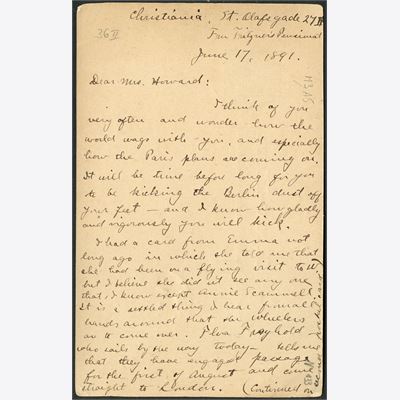 Christiania, St. Olafsgade 27 II
Fru Pension at
June 17, 1891.
36 II
Dear Mrs. Howard:
I think of you
very often and wonder how the
world wags with you, and especially
how the Paris plans are coming on.
It will be time before long for you
to be kicking the Berlin dust off
your feet — and I know how gladly
and vigorously you will kick.
I had a card from Emma not
long ago in which she told me that
she had been on a flying visit to
but I believe she did not see any one
that I know except Annie
It is a settled thing I hear from all
hands around that the Wheelers
are to come over.
who sails by the way today — tells me
that they have engaged passage
for the first of August and come
straight to London. (Continued on
second postal card)